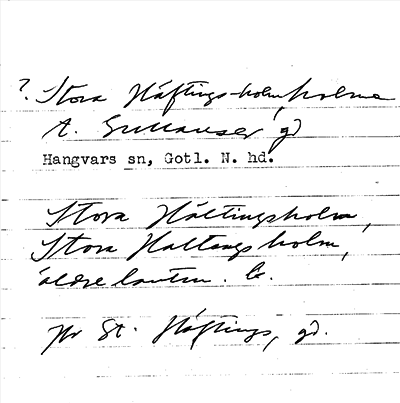 ? Stora Häftings-holm, holme
t. Suttauser, gd
Hangvars sn, Gotl. N. hd.
Stora Hältingsholm,
Stora Haltangs holm,
äldre lantm. k.
Jfr St. Häftings, gd.